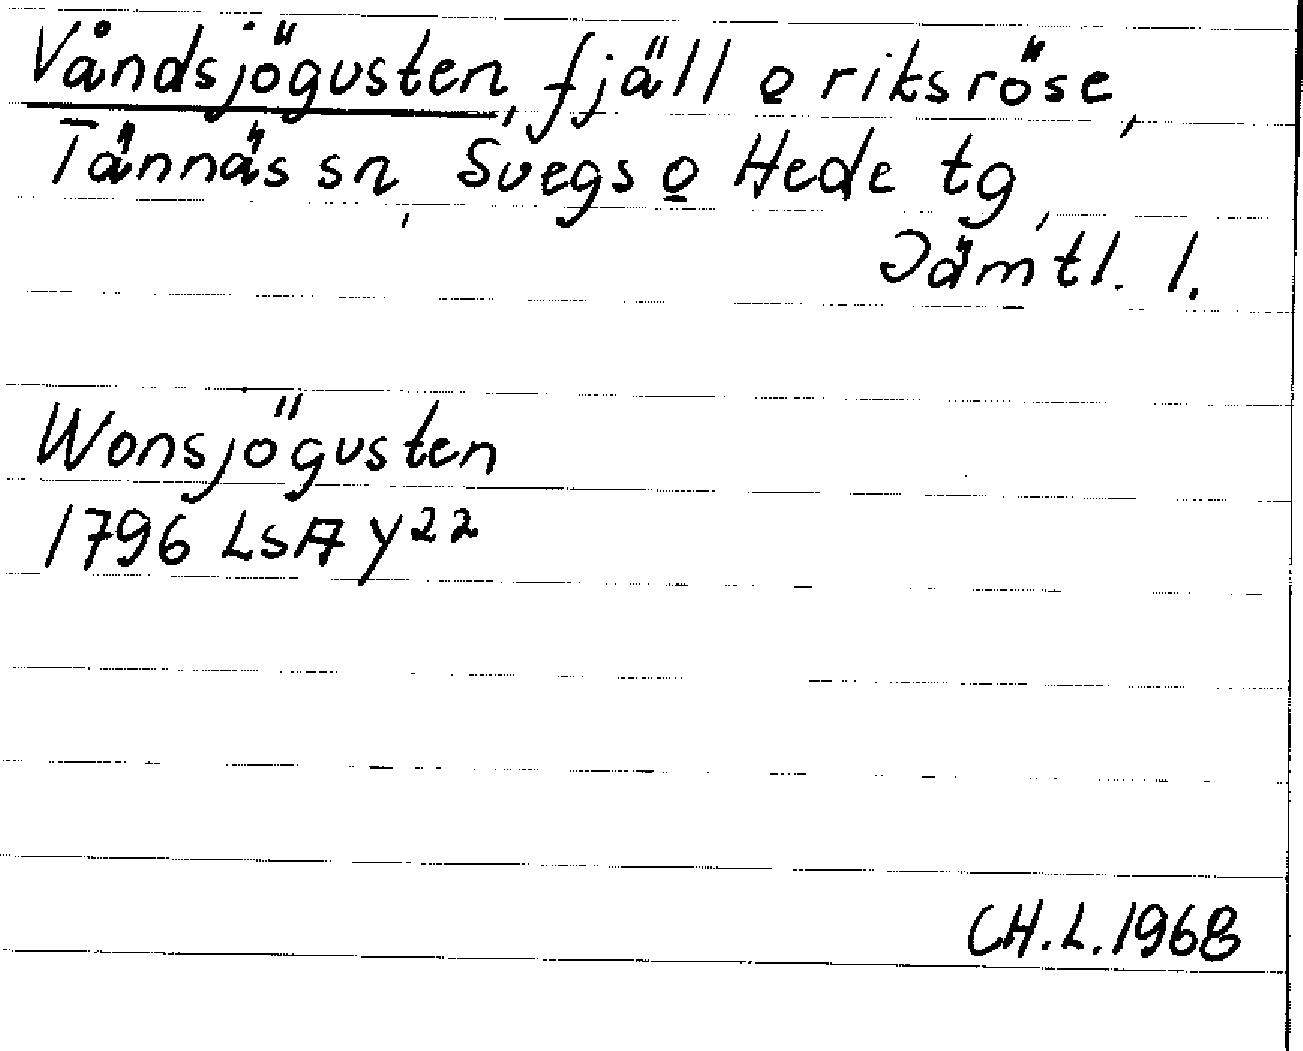 Våndsjögusten, fjäll o riksröse,
Tännäs sn, Svegs o Hede tg,
Jämtl. l.
Wonsjögusten
1796 LSA Y22
CH.L.1968